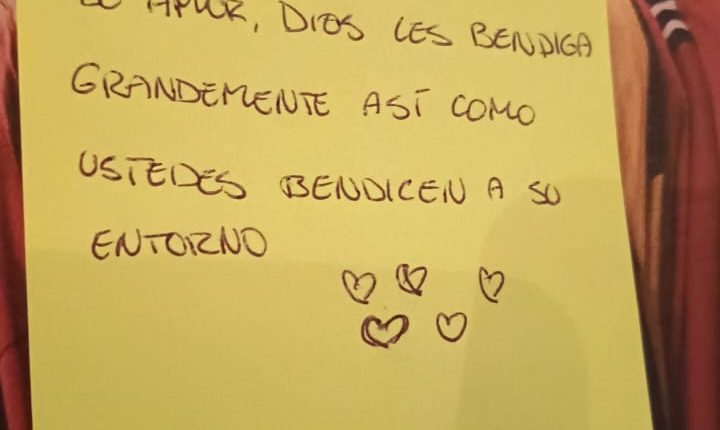 DIOS LES BENDIGA
GRANDEMENTE ASÍ COMO
USTEDES BENDICEN A SU
ENTORNO